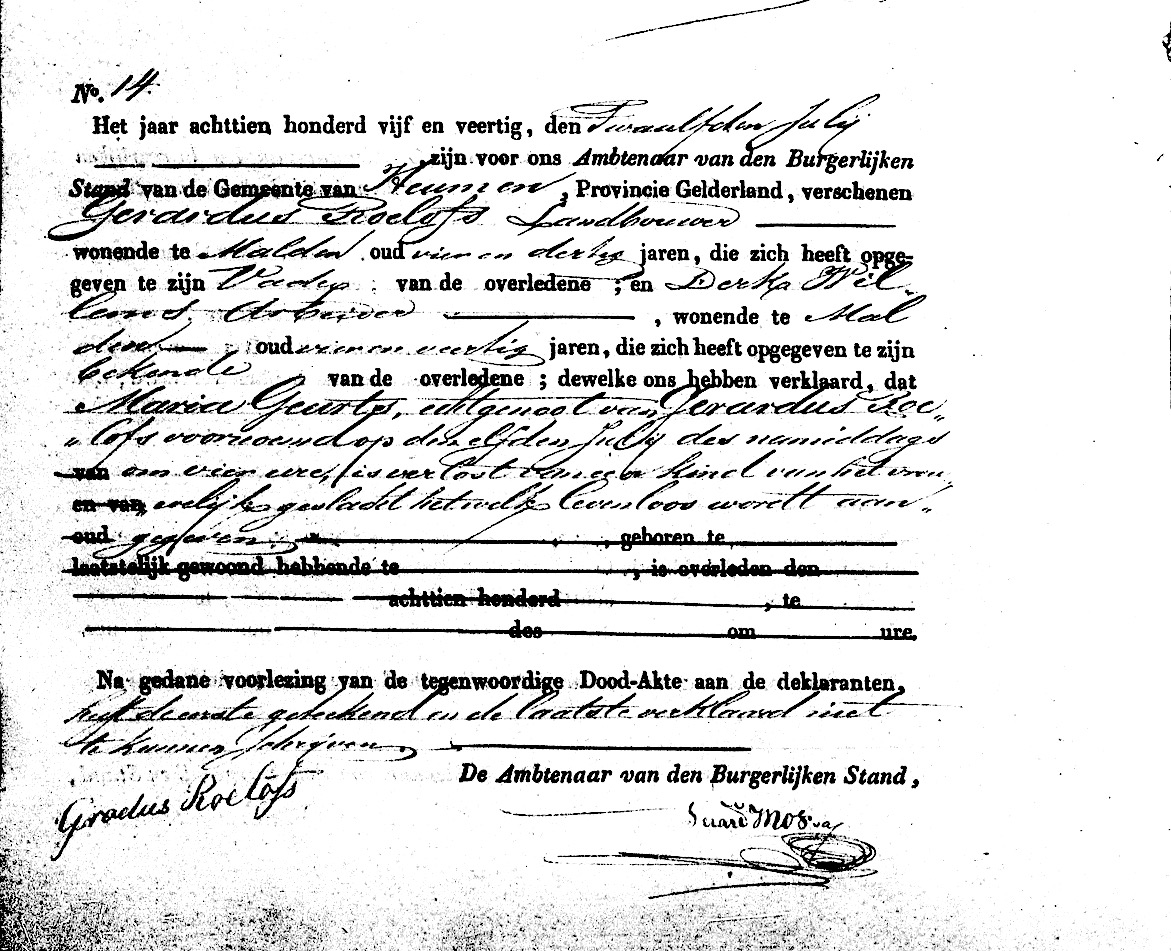 No. 14.
Het jaar achttien honderd vijf en veertig, den Twaalfden July
zijn voor ons Ambtenaar van den Burgerlijken
Stand van de Gemeente van Heumen, Provincie Gelderland, verschenen
Gerardus Roelofs Landbouwer
wonende te Malden oud vier en dertig jaren, die zich heeft opge-
geven te zijn Vader van de overledene ; en Derk Wil„
lems, Arbeider , wonende te Mal
den oud vier en veertig jaren, die zich heeft opgegeven te zijn
bekende van de overledene ; dewelke ons hebben verklaard, dat
Maria Geurts, echtgenoot van Gerardus Roe„
„lofs voornoemd op den elfden July des namiddags
van om vier ure, is verlost van een kind van het vrou„
en van welijk geslacht hetwelk levenloos wordt aan„
oud gegeven. , , geboren te
laatstelijk gewoond hebbende te , is overleden den
achttien honderd , te
des om ure.
Na gedane voorlezing van de tegenwoordige Dood-Akte aan de deklaranten,
heeft de eerste geteekend en de laatste verklaard niet
te kunnen schrijven.
De Ambtenaar van den Burgerlijken Stand,
Gradus Roelofs